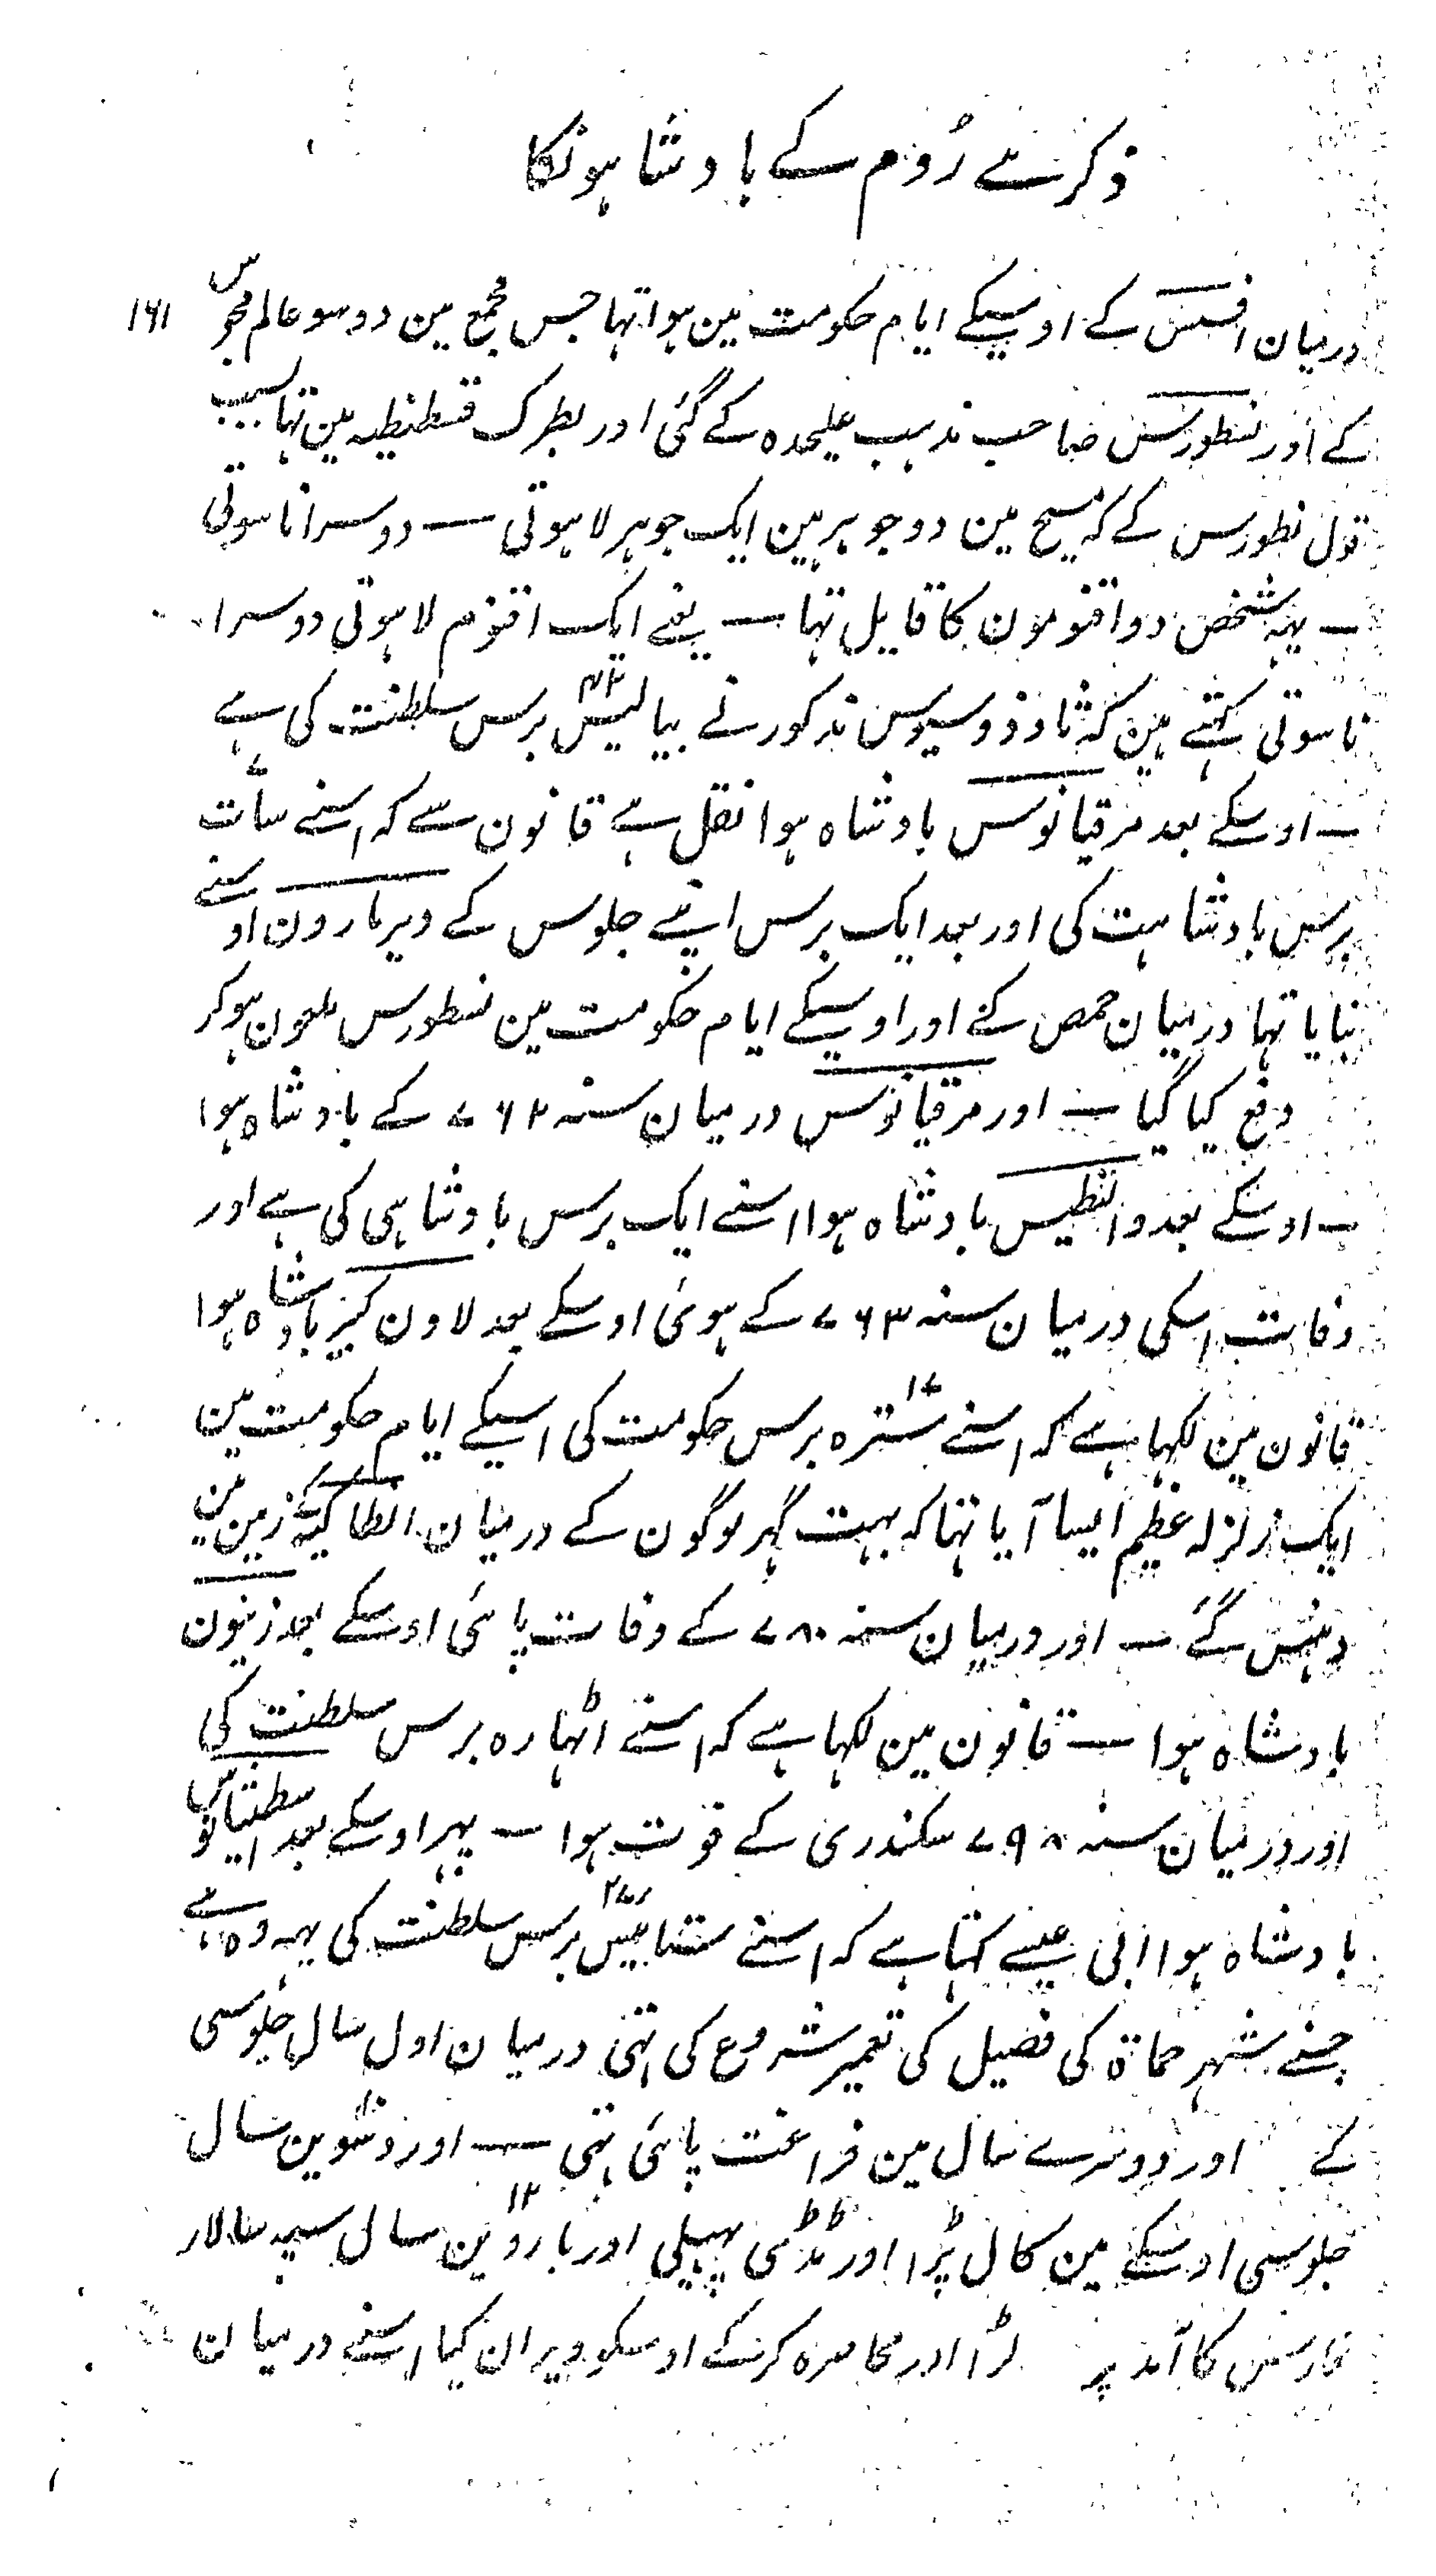 ذکر سے رُوم کے بادشاہونکا
۱۶۱
درمیان افسس کے اوسیکے ایام حکومت مین ہوا تہا جس مجمع مین دو سو عالم مجوس
کے اور نسطورس صاحب مذہب علیحدہ کے گئی اور بطرک قسطنطیہ مین تہا بسبب
قول نطورس کے کہ مسیح مین دو جوہر ہین ایک جوہر لاہوتی ــ دوسرا ناسوتی
ــ یہہ شخص دو اقنومون کا قایل تہا ــ یعنے ایک اقنوم لاہوتی دوسرا
ناسوتی کہتے ہین کہ ثاوذوسیوس مذکور نے بیالیس ۴۲ برس سلطنت کی ہے
ــ اوسکے بعد مرقیانوس بادشاہ ہوا نقل ہے قانون سے کہ اسنے سات ۷
برس بادشاہت کی اور بعد ایک برس اپنے جلوس کے دیر مارون اوسنے
بنایا تہا درمیان حمص کے اور اوسیکے ایام حکومت مین نسطورس ملعون ہوکر
دفع کیا گیا ــ اور مرقیانوس درمیان سنہ ۷۶۲ کے بادشاہ ہوا
ــ اوسکے بعد والنطیس بادشاہ ہوا اسنے ایک برس بادشاہی کی ہے اور
وفات اسکی درمیان سنہ ۷۶۳ کے ہوئی اوسکے بعد لاون کبیر بادشاہ ہوا
قانون مین لکہا ہے کہ اسنے ستترہ ۱۷ برس حکومت کی اسیکے ایام حکومت مین
ایک زلزلہ عظیم ایسا آیا تہا کہ بہت گہر لوگون کے درمیان انطاکیہ کے زمین مین
دہنس گئے ــ اور درمیان سنہ ۷۸۰ کے وفات پائی اوسکے بعد زینون
بادشاہ ہوا ــ قانون مین لکہا ہے کہ اسنے اٹہارہ برس سلطنت کی
اور درمیان سنہ ۷۹۸ سکندری کے فوت ہوا ــ پہر اوسکے بعد اسطیثیانوس
بادشاہ ہوا ابی عیسے کہتا ہے کہ اسنے ستتائیس ۲۷ برس سلطنت کی یہہ وہ ہے
جسنے شہر حماة کی فصیل کی تعمیر شروع کی تہی درمیان اول سال جلوسی
کے اور دوسرے سال مین فراغت پائی تہی ــ اور دسوین ۱۰ سال
جلوسی اوسکے مین کال پڑا اور ٹڈی پہیلی اور باروین ۱۲ سال سپہ سالار
فارس کا آمد پر لڑا اور محاصرہ کرکے اوسکو ویران کیا اسنے درمیان